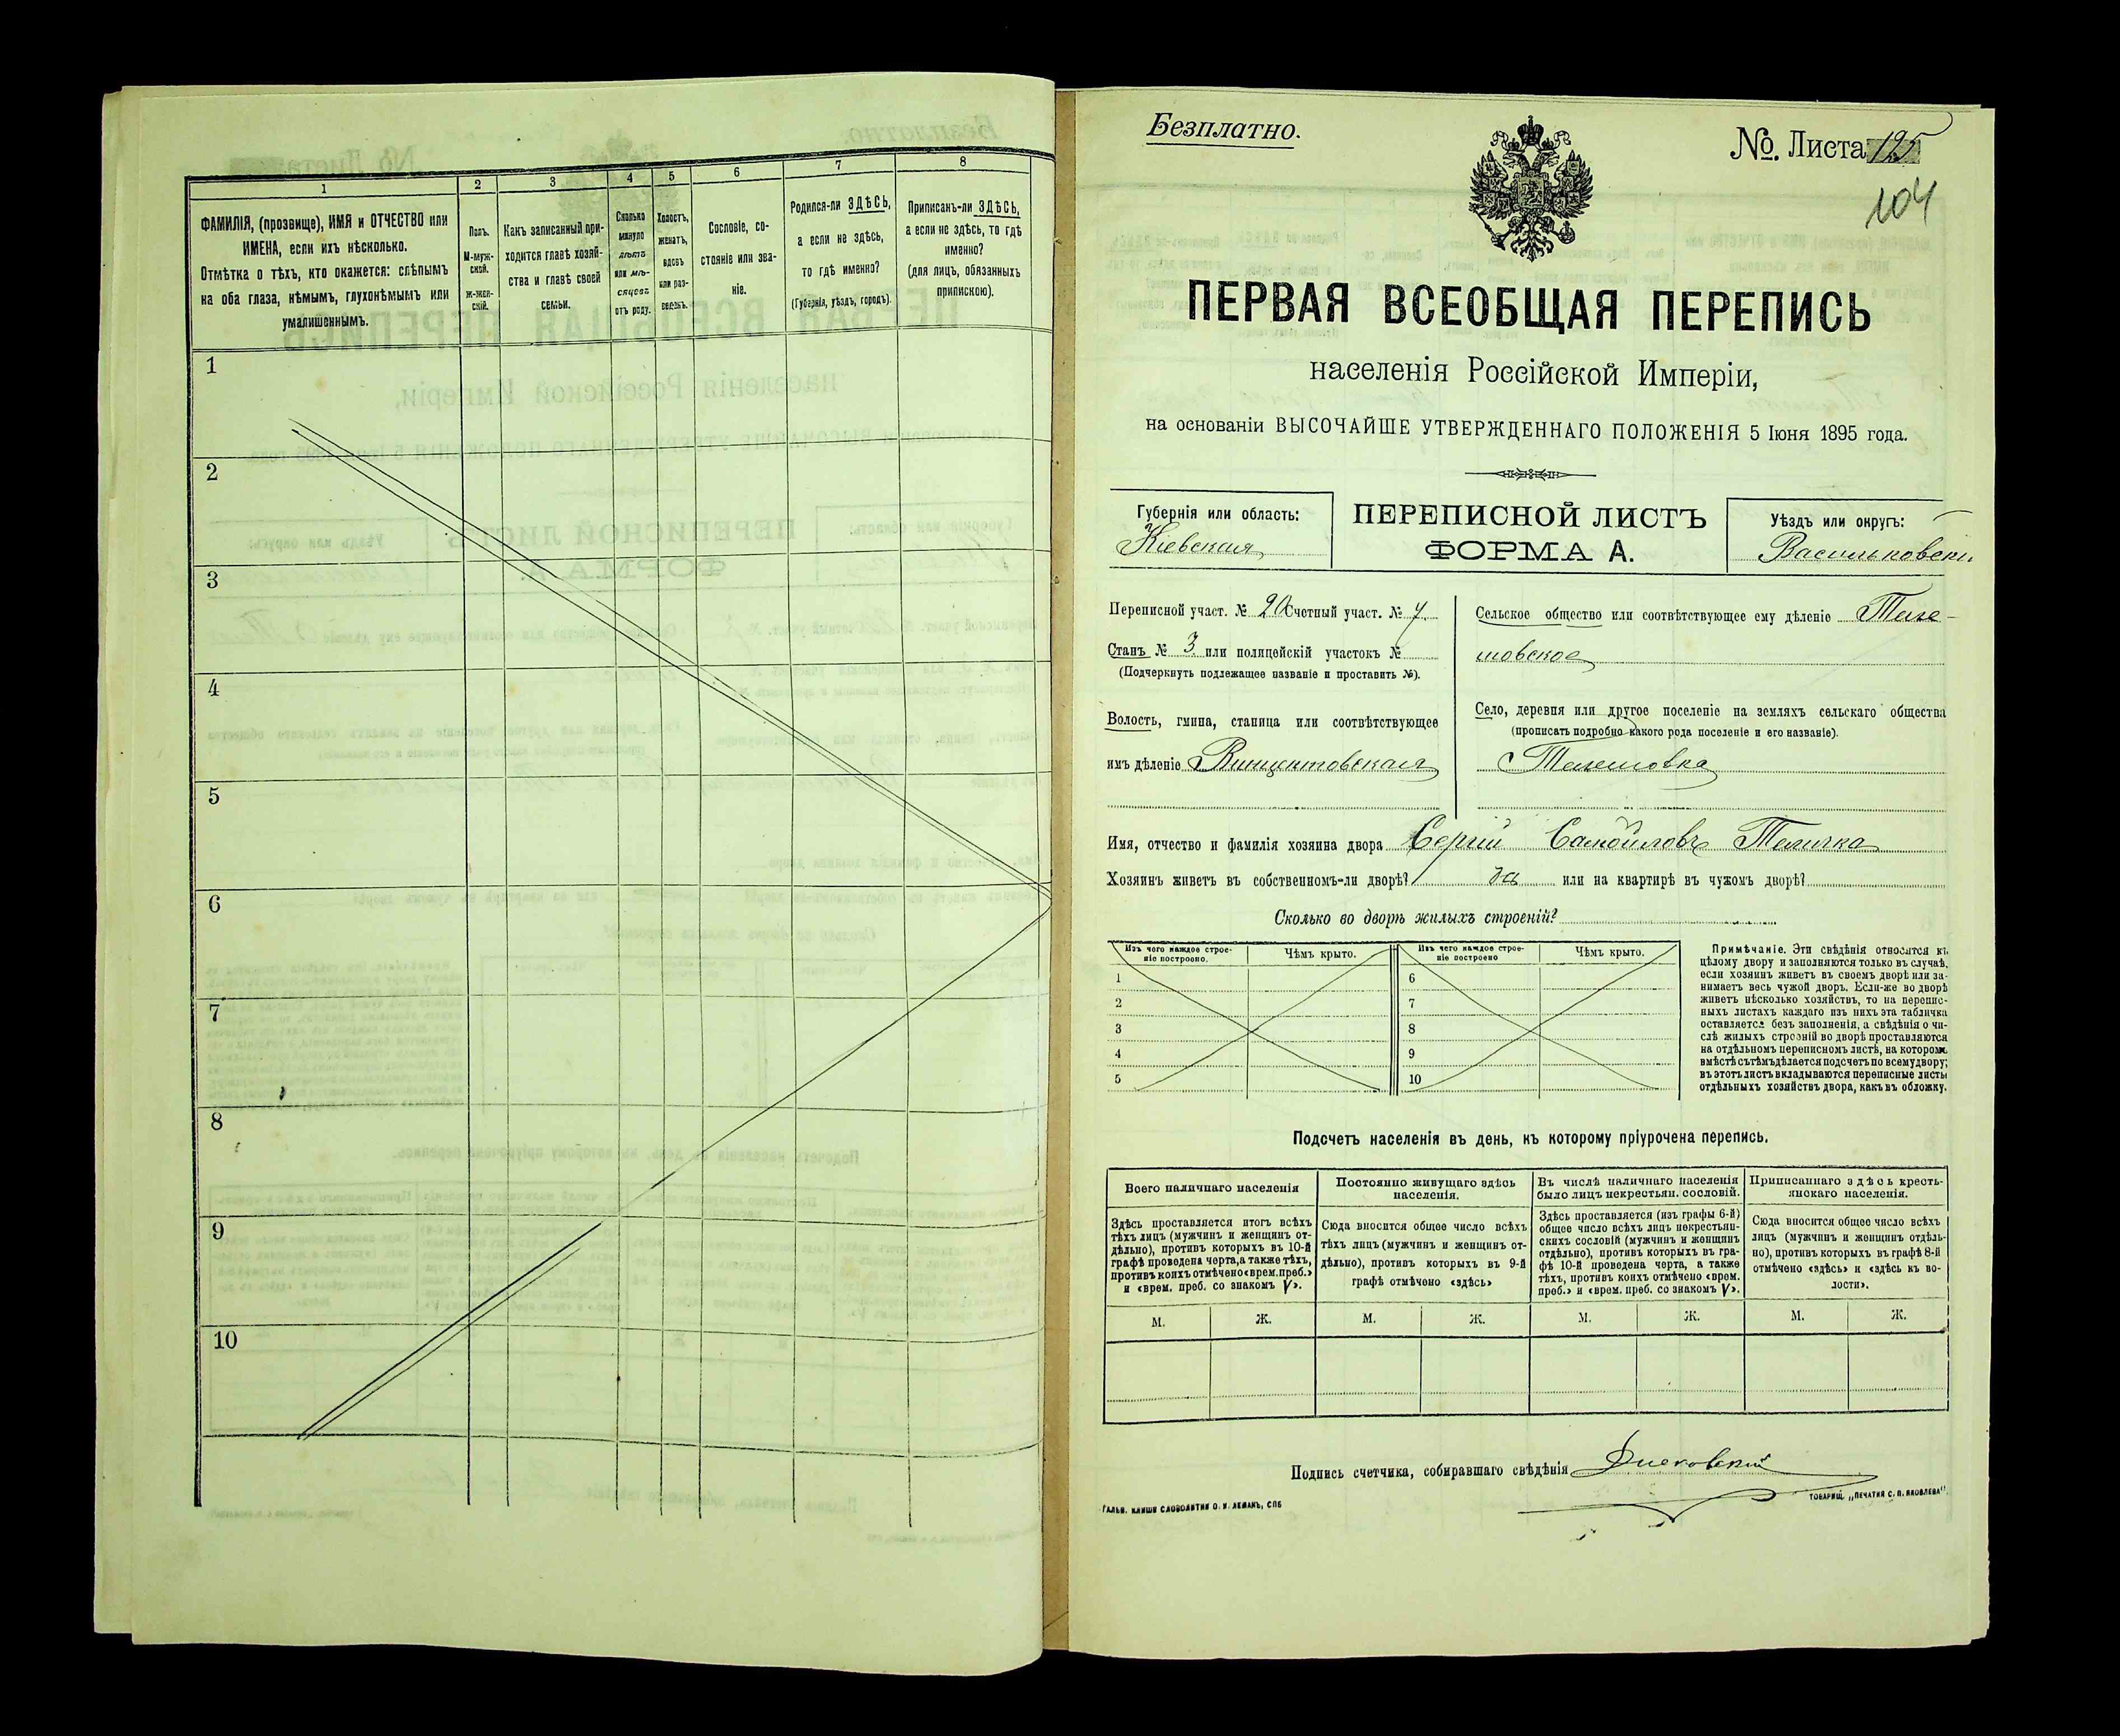 1
2
3
4
5
6
7
8
ФАМИЛІЯ, (прозвище), ИМЯ и ОТЧЕСТВО или
ИМЕНА, если ихъ нѣсколько.
Отмѣтка о тѣхъ, кто окажется: слѣпымъ
на оба глаза, нѣмымъ, глухонѣмымъ или
умалишеннымъ.
Полъ.
М-муж-
ской.
Ж-жен-
скій.
Какъ записанный при-
ходится главѣ хозяй-
ства и главѣ своей
семьи.
Сколько
минуло
лѣтъ
или мѣ-
сяцевъ
отъ роду.
Холостъ,
женатъ,
вдовъ
или раз-
веденъ.
Сословіе, со-
стояніе или зва-
ніе.
Родился-ли ЗДѢСЬ,
а если не здѣсь,
то гдѣ именно?
(Губернія, уѣздъ, городъ).
Приписанъ-ли ЗДѢСЬ,
а если не здѣсь, то гдѣ
именно?
(для лицъ, обязанныхъ
припискою).
1
2
3
4
5
6
7
8
9
10
Безплатно.
№. Листа 125
104
ПЕРВАЯ ВСЕОБЩАЯ ПЕРЕПИСЬ
населенія Россійской Имперіи,
на основаніи ВЫСОЧАЙШЕ УТВЕРЖДЕННАГО ПОЛОЖЕНІЯ 5 Іюня 1895 года.
Губернія или область:
Кіевская
ПЕРЕПИСНОЙ ЛИСТЪ
ФОРМА А.
Уѣздъ или округъ:
Васильковскі
Переписной участ. № 20 Счетный участ. № 7
Станъ № 3 или полицейскій участокъ №
(Подчеркнуть подлежащее названіе и проставить №).
Волость, гмина, станица или соотвѣтствующее
имъ дѣленіе Винцентовская
Сельское общество или соотвѣтствующее ему дѣленіе Теле-
шовское
Село, деревня или другое поселеніе на земляхъ сельскаго общества
(прописать подробно какого рода поселеніе и его названіе).
Телешовка
Имя, отчество и фамилія хозяина двора Сергій Самойловъ Теличка
Хозяинъ живетъ въ собственномъ-ли дворѣ? да или на квартирѣ въ чужомъ дворѣ?
Сколько во дворѣ жилыхъ строеній?
Изъ чего каждое строе-
ніе построено.
Чѣмъ крыто.
Изъ чего каждое строе-
ніе построено
Чѣмъ крыто.
1
2
3
4
5
6
7
8
9
10
Примѣчаніе. Эти свѣдѣнія относятся къ
цѣлому двору и заполняются только въ случаѣ,
если хозяинъ живетъ въ своемъ дворѣ или за-
нимаетъ весь чужой дворъ. Если-же во дворѣ
живетъ нѣсколько хозяйствъ, то на перепис-
ныхъ листахъ каждаго изъ нихъ эта табличка
оставляется безъ заполненія, а свѣдѣнія о чи-
слѣ жилыхъ строеній во дворѣ проставляются
на отдѣльномъ переписномъ листѣ, на которомъ
вмѣстѣ съ тѣмъ дѣлается подсчетъ по всему двору;
въ этотъ листъ вкладываются переписные листы
отдѣльныхъ хозяйствъ двора, какъ въ обложку.
Подсчетъ населенія въ день, къ которому пріурочена перепись.
Всего наличнаго населенія
Здѣсь проставляется итогъ всѣхъ
тѣхъ лицъ (мужчинъ и женщинъ от-
дѣльно), противъ которыхъ въ 10-й
графѣ проведена черта, а также тѣхъ,
противъ коихъ отмѣчено «врем. преб.»
и «врем. преб. со знакомъ V».
Постоянно живущаго здѣсь
населенія.
Сюда вносится общее число всѣхъ
тѣхъ лицъ (мужчинъ и женщинъ от-
дѣльно), противъ которыхъ въ 9-й
графѣ отмѣчено «здѣсь»
Въ числѣ наличнаго населенія
было лицъ некрестьян. сословій.
Здѣсь проставляется (изъ графы 6-й)
общее число всѣхъ лицъ некрестьян-
скихъ сословій (мужчинъ и женщинъ
отдѣльно), противъ которыхъ въ гра-
фѣ 10-й проведена черта, а также
тѣхъ, противъ коихъ отмѣчено «врем.
преб.» и «врем. преб. со знакомъ V».
Приписаннаго здѣсь кресть-
янскаго населенія.
Сюда вносится общее число всѣхъ
лицъ (мужчинъ и женщинъ отдѣль-
но), противъ которыхъ въ графѣ 8-й
отмѣчено «здѣсь» и «здѣсь къ во-
лости».
М.
Ж.
М.
Ж.
М.
Ж.
М.
Ж.
Подпись счетчика, собиравшаго свѣдѣнія
ГАЛЬВ. КЛИШИ СЛОВОЛИТНИ О. И. ЛЕМАНЪ, СПБ
ТОВАРИЩ. „ПЕЧАТНЯ С. П. ЯКОВЛЕВА“.